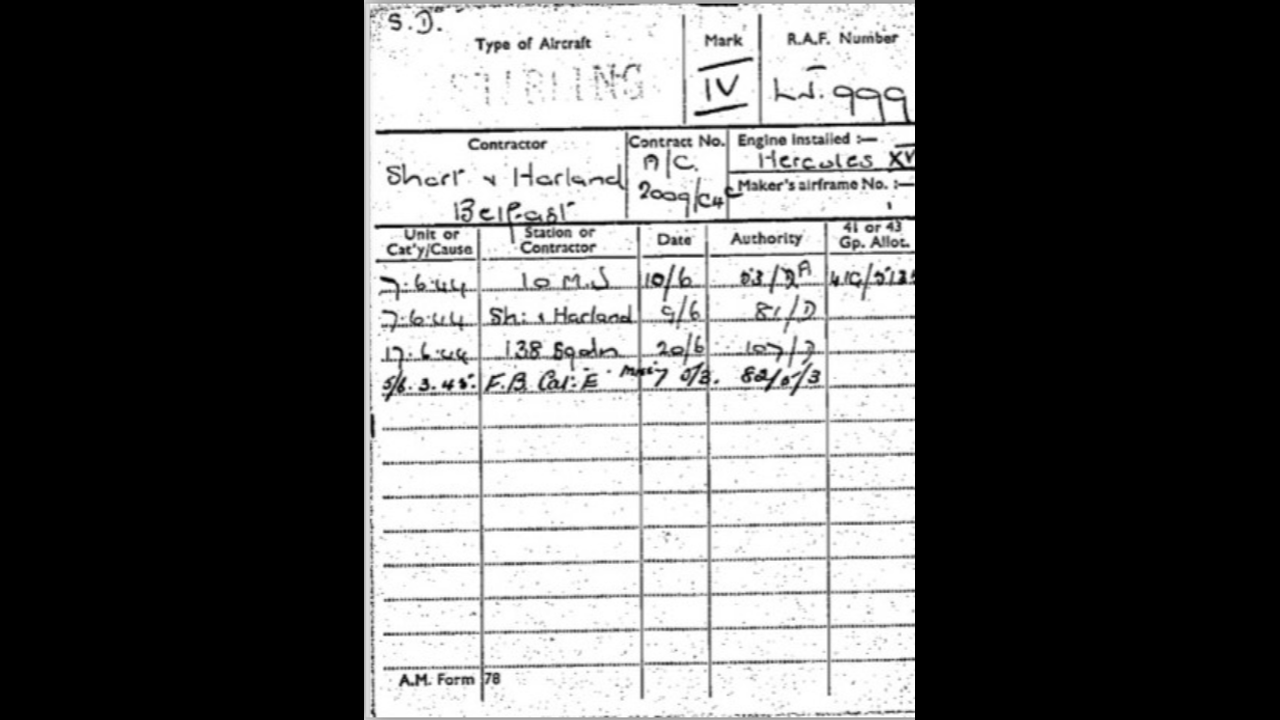 S.D.
Type of Aircraft Mark R.A.F. Number
STIRLING IV LJ. 999
Contractor Contract No. Engine Installed :—
Short & Harland A/C. Hercules XV
Belfast 2009/C4C Maker's airframe No. :—
Unit or Cat'y/Cause Station or Contractor Date Authority 41 or 43 Gp. Allot.
7.6.44 10 M.U 10/6 53/2A
7.6.44 Sh: & Harland 9/6 81/D
17.6.44 138 Sqdn 20/6 107/D
5/6.3.45. F.B. Cat: E 5/3. 82/5/3
A.M. Form 78